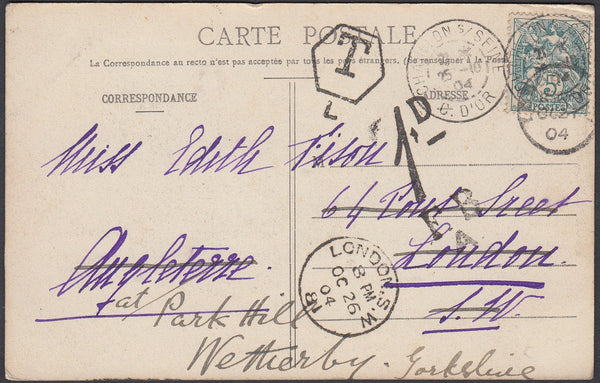 CARTE POSTALE
La Correspondance au recto n'est pas acceptée par tous les pays étrangers, (Se renseigner à la Poste)
CORRESPONDANCE
ADRESSE
T
L
1D
CHATILLON S/ SEINE
25 -10
04
C. D'OR
5
POSTES
OC 27
04
Miss Edith
64 Pont Street
London
S.W.
Angleterre
LONDON. S.W
8 PM
OC 26
04
81
at Park Hill
Wetherby. Yorkshire